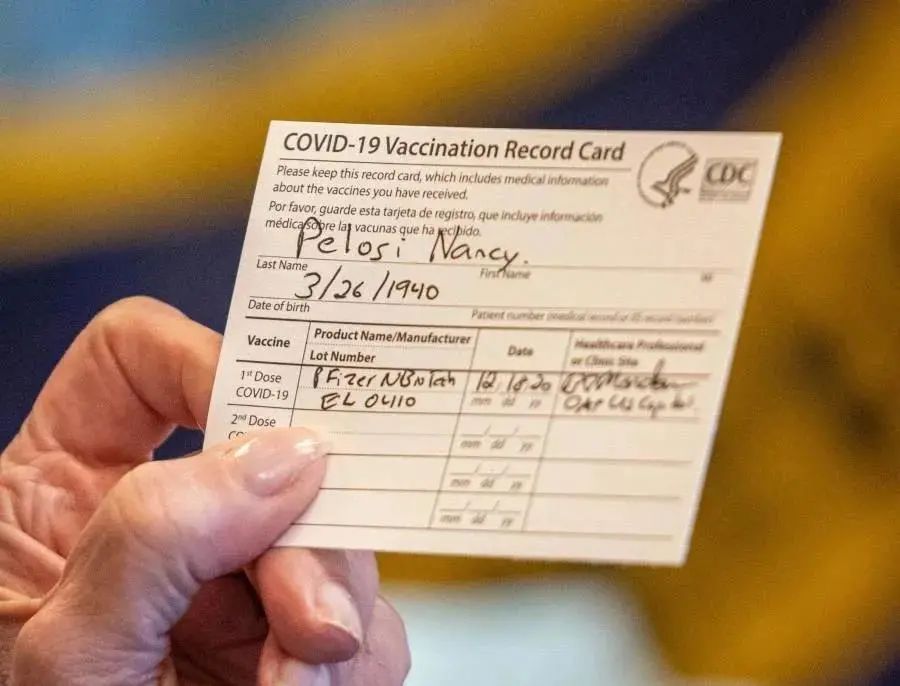 COVID-19 Vaccination Record Card
CDC
Please keep this record card, which includes medical information
about the vaccines you have received.
Por favor, guarde esta tarjeta de registro, que incluye información
médica sobre las vacunas que ha recibido.
Pelosi Nancy.
Last Name First Name MI
3/26/1940
Date of birth Patient number (medical record or IIS record number)
Vaccine Product Name/Manufacturer Date Healthcare Professional
Lot Number or Clinic Site
1st Dose Pfizer NBnTch 12.18.20
COVID-19 EL 0410 mm dd yy OAP US Capitol
2nd Dose
mm dd yy
mm dd yy
mm dd yy